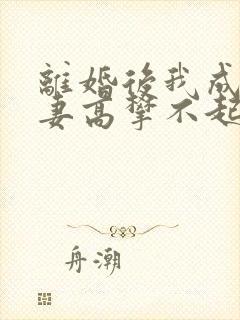 離婚後我成
妻高攀不起
舟潮